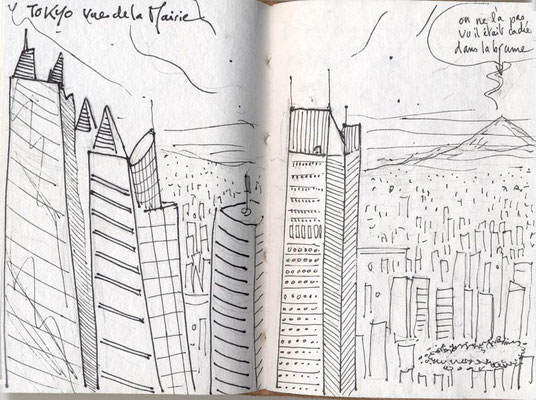 TOKYO vues de la Mairie
on ne l'a pas
vu il était caché
dans la brume